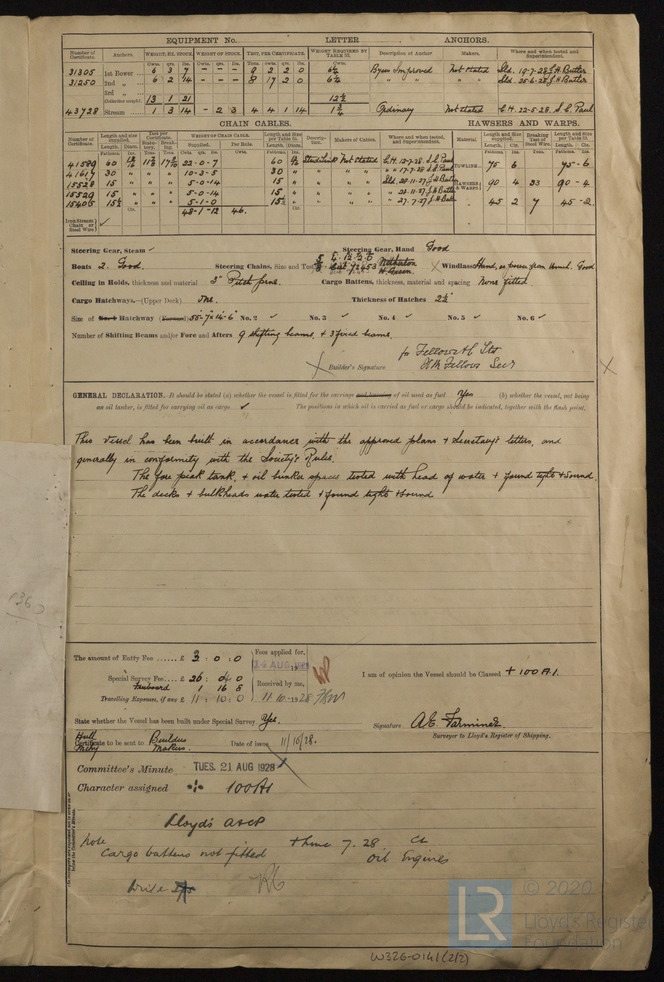 EQUIPMENT No. LETTER ANCHORS.
Number of Certificate. Anchors. WEIGHT, EX. STOCK. WEIGHT OF STOCK. TEST, PER CERTIFICATE. WEIGHT REQUIRED BY TABLE 31. Description of Anchor Makers. Where and when tested and Superintendent.
31305 1st Bower 6 3 7 - - - 9 2 2 0 6¼ Byers Improved Not stated Sld. 19-7-28 J.H. Butler
31250 2nd " 6 2 14 - - - 8 17 2 0 6¼ " " " " Sld. 25-6-28 J.H. Butler
3rd "
Collective weight 13 1 21 12½
43728 Stream 1 3 14 - 2 3 4 4 1 14 1¾ Ordinary Not stated C.H. 22-5-28. S.C. Paul
CHAIN CABLES. HAWSERS AND WARPS.
Number of Certificate. Length and size supplied. Test per Certificate. WEIGHT OF CHAIN CABLE. Length and Size per Table 31. Description. Makers of Cables. Where and when tested, and Superintendent. Material Length and Size supplied. Breaking Test of Steel Wire. Length and Size per Table 31.
Fathoms. Diam. Supplied. Per Rule.
41589 60 22-0-7 60 Stud Link Not stated C.H. 12-7-28 S.C. Paul TOWLINE 75 6 75-6
41617 30 " " 10-3-5 30 " " " " 17-7-28 S.C. Paul
15528 15 " " 5-0-14 15 " " " Sld. 28-11-27 J.H. Butler HAWSERS & WARPS 90 4 33 90-4
15529 15 " " 5-0-14 15 " " " " 28-11-27 J.H. Butler
15405 15½ " " 5-1-0 15½ " " " " 27-7-27 J.H. Butler 45 2 7 45-2
48-1-12 46.
Iron Stream Chain or Steel Wire
Steering Gear, Steam ✓ Steering Gear, Hand Good
Boats 2. Good. Steering Chains, Size and Test Windlass Hand, or power from winch. Good
Ceiling in Holds, thickness and material 2" Pitch pine. Cargo Battens, thickness, material and spacing None fitted
Cargo Hatchways.—(Upper Deck) One. Thickness of Hatches 2½"
Size of Hatchway 55'-7" x 14'-6" No. 2 ✓ No. 3 ✓ No. 4 ✓ No. 5 ✓ No. 6 ✓
Number of Shifting Beams and/or Fore and Afters 9 shifting beams, + 3 fixed beams.
for Fellows & Co Ltd
Builder's Signature Fellows Secy
GENERAL DECLARATION. It should be stated (a) whether the vessel is fitted for the carriage and burning of oil used as fuel Yes (b) whether the vessel, not being
an oil tanker, is fitted for carrying oil as cargo ✓ The positions in which oil is carried as fuel or cargo should be indicated, together with the flash point,
This vessel has been built in accordance with the approved plans & Secretary's letters, and
generally in conformity with the Society's Rules.
The fore peak tank, & oil bunker spaces tested with head of water & found tight & sound.
The decks & bulkheads water tested & found tight & sound
The amount of Entry Fee ...... £ 2 : 0 : 0 Fees applied for,
14 AUG 1928
Special Survey Fee..... £ 26 : 0 I am of opinion the Vessel should be Classed + 100 A.1.
Freeboard 1 16 8 Received by me,
Travelling Expenses, if any £ 11 : 10 : 0 11.10.1928
State whether the Vessel has been built under Special Survey Yes. Signature A.E. Farminer.
Surveyor to Lloyd's Register of Shipping.
Hull Mchy Certificate to be sent to Builders Makers. Date of issue 11/10/28.
Committee's Minute TUES. 21 AUG 1928
Character assigned 100A1
Lloyd's A&CP
Note + LMC 7.28 CL
Cargo battens not fitted Oil Engines
© 2020
LR Lloyd's Register
Foundation
W326-0141(2/2)